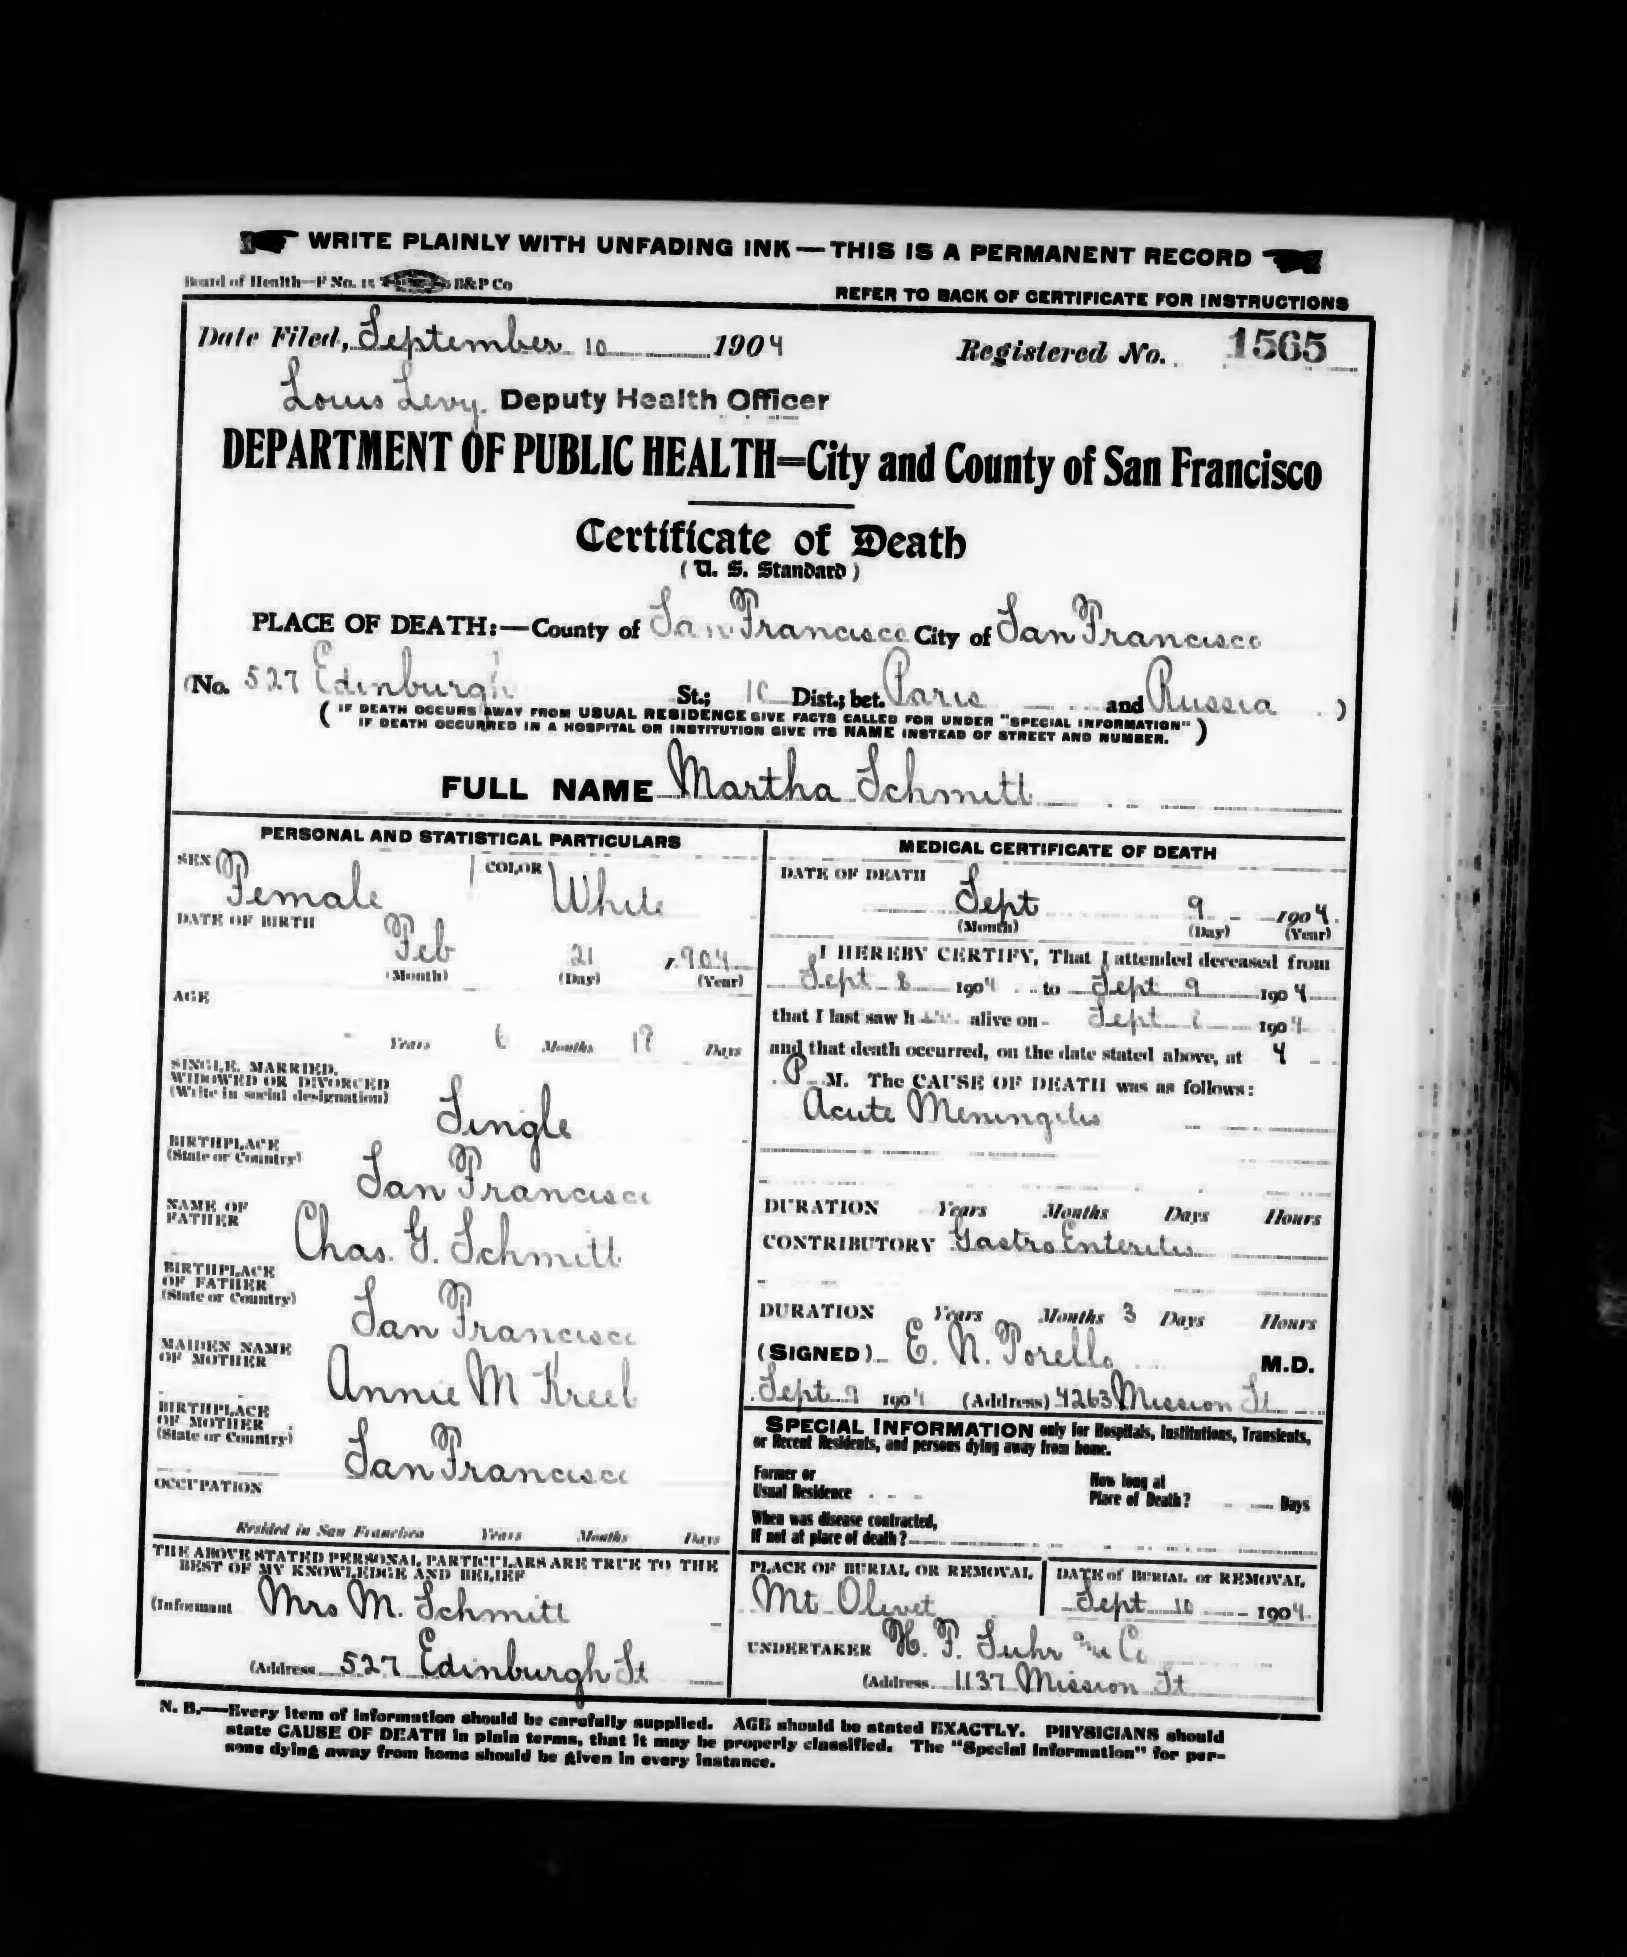 WRITE PLAINLY WITH UNFADING INK—THIS IS A PERMANENT RECORD
Board of Health—F No. 15 B&P Co
REFER TO BACK OF CERTIFICATE FOR INSTRUCTIONS
Date Filed, September 10 1904 Registered No. 1565
Louis Levy. Deputy Health Officer
DEPARTMENT OF PUBLIC HEALTH=City and County of San Francisco
Certificate of Death
(U. S. Standard)
PLACE OF DEATH:—County of San Francisco City of San Francisco
(No. 527 Edinburgh St.; 10 Dist.; bet. Paris and Russia )
( IF DEATH OCCURS AWAY FROM USUAL RESIDENCE GIVE FACTS CALLED FOR UNDER "SPECIAL INFORMATION"
IF DEATH OCCURRED IN A HOSPITAL OR INSTITUTION GIVE ITS NAME INSTEAD OF STREET AND NUMBER. )
FULL NAME Martha Schmitt
PERSONAL AND STATISTICAL PARTICULARS
SEX Female COLOR White
DATE OF BIRTH
Feb 21 , 904
(Month) (Day) (Year)
AGE
Years 6 Months 19 Days
SINGLE, MARRIED,
WIDOWED OR DIVORCED
(Write in social designation)
Single
BIRTHPLACE
(State or Country)
San Francisco
NAME OF
FATHER
Chas. G. Schmitt
BIRTHPLACE
OF FATHER
(State or Country)
San Francisco
MAIDEN NAME
OF MOTHER
Annie M Kreeb
BIRTHPLACE
OF MOTHER
(State or Country)
San Francisco
OCCUPATION
Resided in San Francisco Years Months Days
THE ABOVE STATED PERSONAL PARTICULARS ARE TRUE TO THE
BEST OF MY KNOWLEDGE AND BELIEF
(Informant Mrs M. Schmitt
(Address 527 Edinburgh St
MEDICAL CERTIFICATE OF DEATH
DATE OF DEATH
Sept 9 1904
(Month) (Day) (Year)
I HEREBY CERTIFY, That I attended deceased from
Sept 8 1904 to Sept 9 1904
that I last saw h alive on Sept 1904
and that death occurred, on the date stated above, at 4
P M. The CAUSE OF DEATH was as follows:
Acute Meningitis
DURATION Years Months Days Hours
CONTRIBUTORY Gastro Enteritis
DURATION Years Months 3 Days Hours
(SIGNED) E. N. Torello M.D.
Sept 9 1904 (Address) 4263 Mission St
SPECIAL INFORMATION only for Hospitals, Institutions, Transients,
or Recent Residents, and persons dying away from home.
Former or
Usual Residence
How long at
Place of Death? Days
When was disease contracted,
If not at place of death?
PLACE OF BURIAL OR REMOVAL
Mt Olivet
DATE of BURIAL or REMOVAL
Sept 10 1904
UNDERTAKER H. F. Suhr and Co
(Address 1137 Mission St
N. B.—Every item of information should be carefully supplied. AGE should be stated EXACTLY. PHYSICIANS should
state CAUSE OF DEATH in plain terms, that it may be properly classified. The "Special Information" for per-
sons dying away from home should be given in every instance.